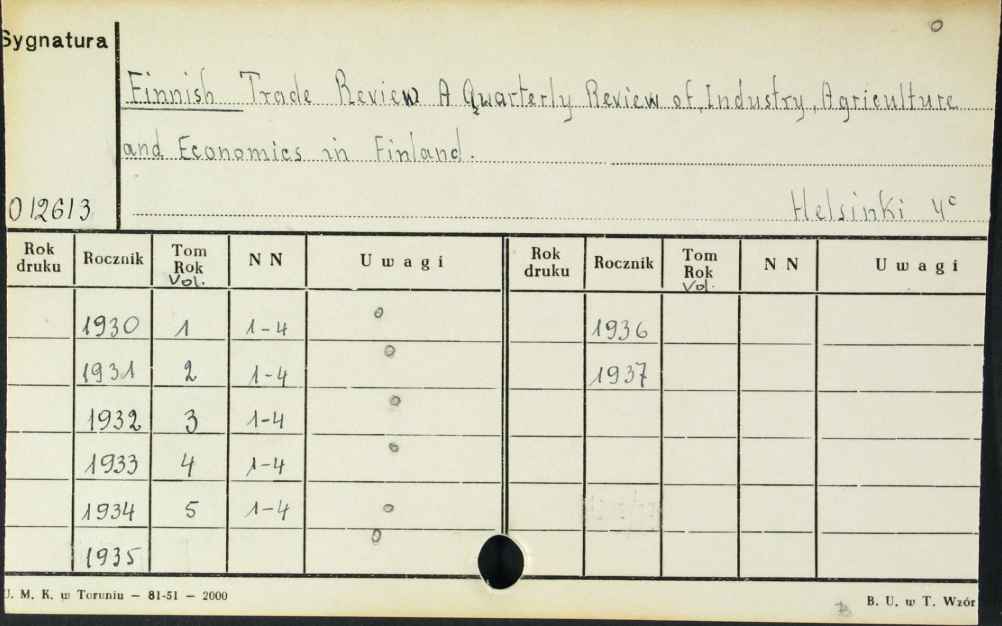 Sygnatura
Finnish Trade Review A Quarterly Review of Industry, Agriculture
and Economics in Finland.
012613
Helsinki 4°
Rok druku Rocznik Tom Rok Vol. N N Uwagi Rok druku Rocznik Tom Rok Vol. N N Uwagi
1930 1 1-4 1936
1931 2 1-4 1937
1932 3 1-4
1933 4 1-4
1934 5 1-4
1935
U. M. K. w Toruniu — 81-51 — 2000
B. U. w T. Wzór